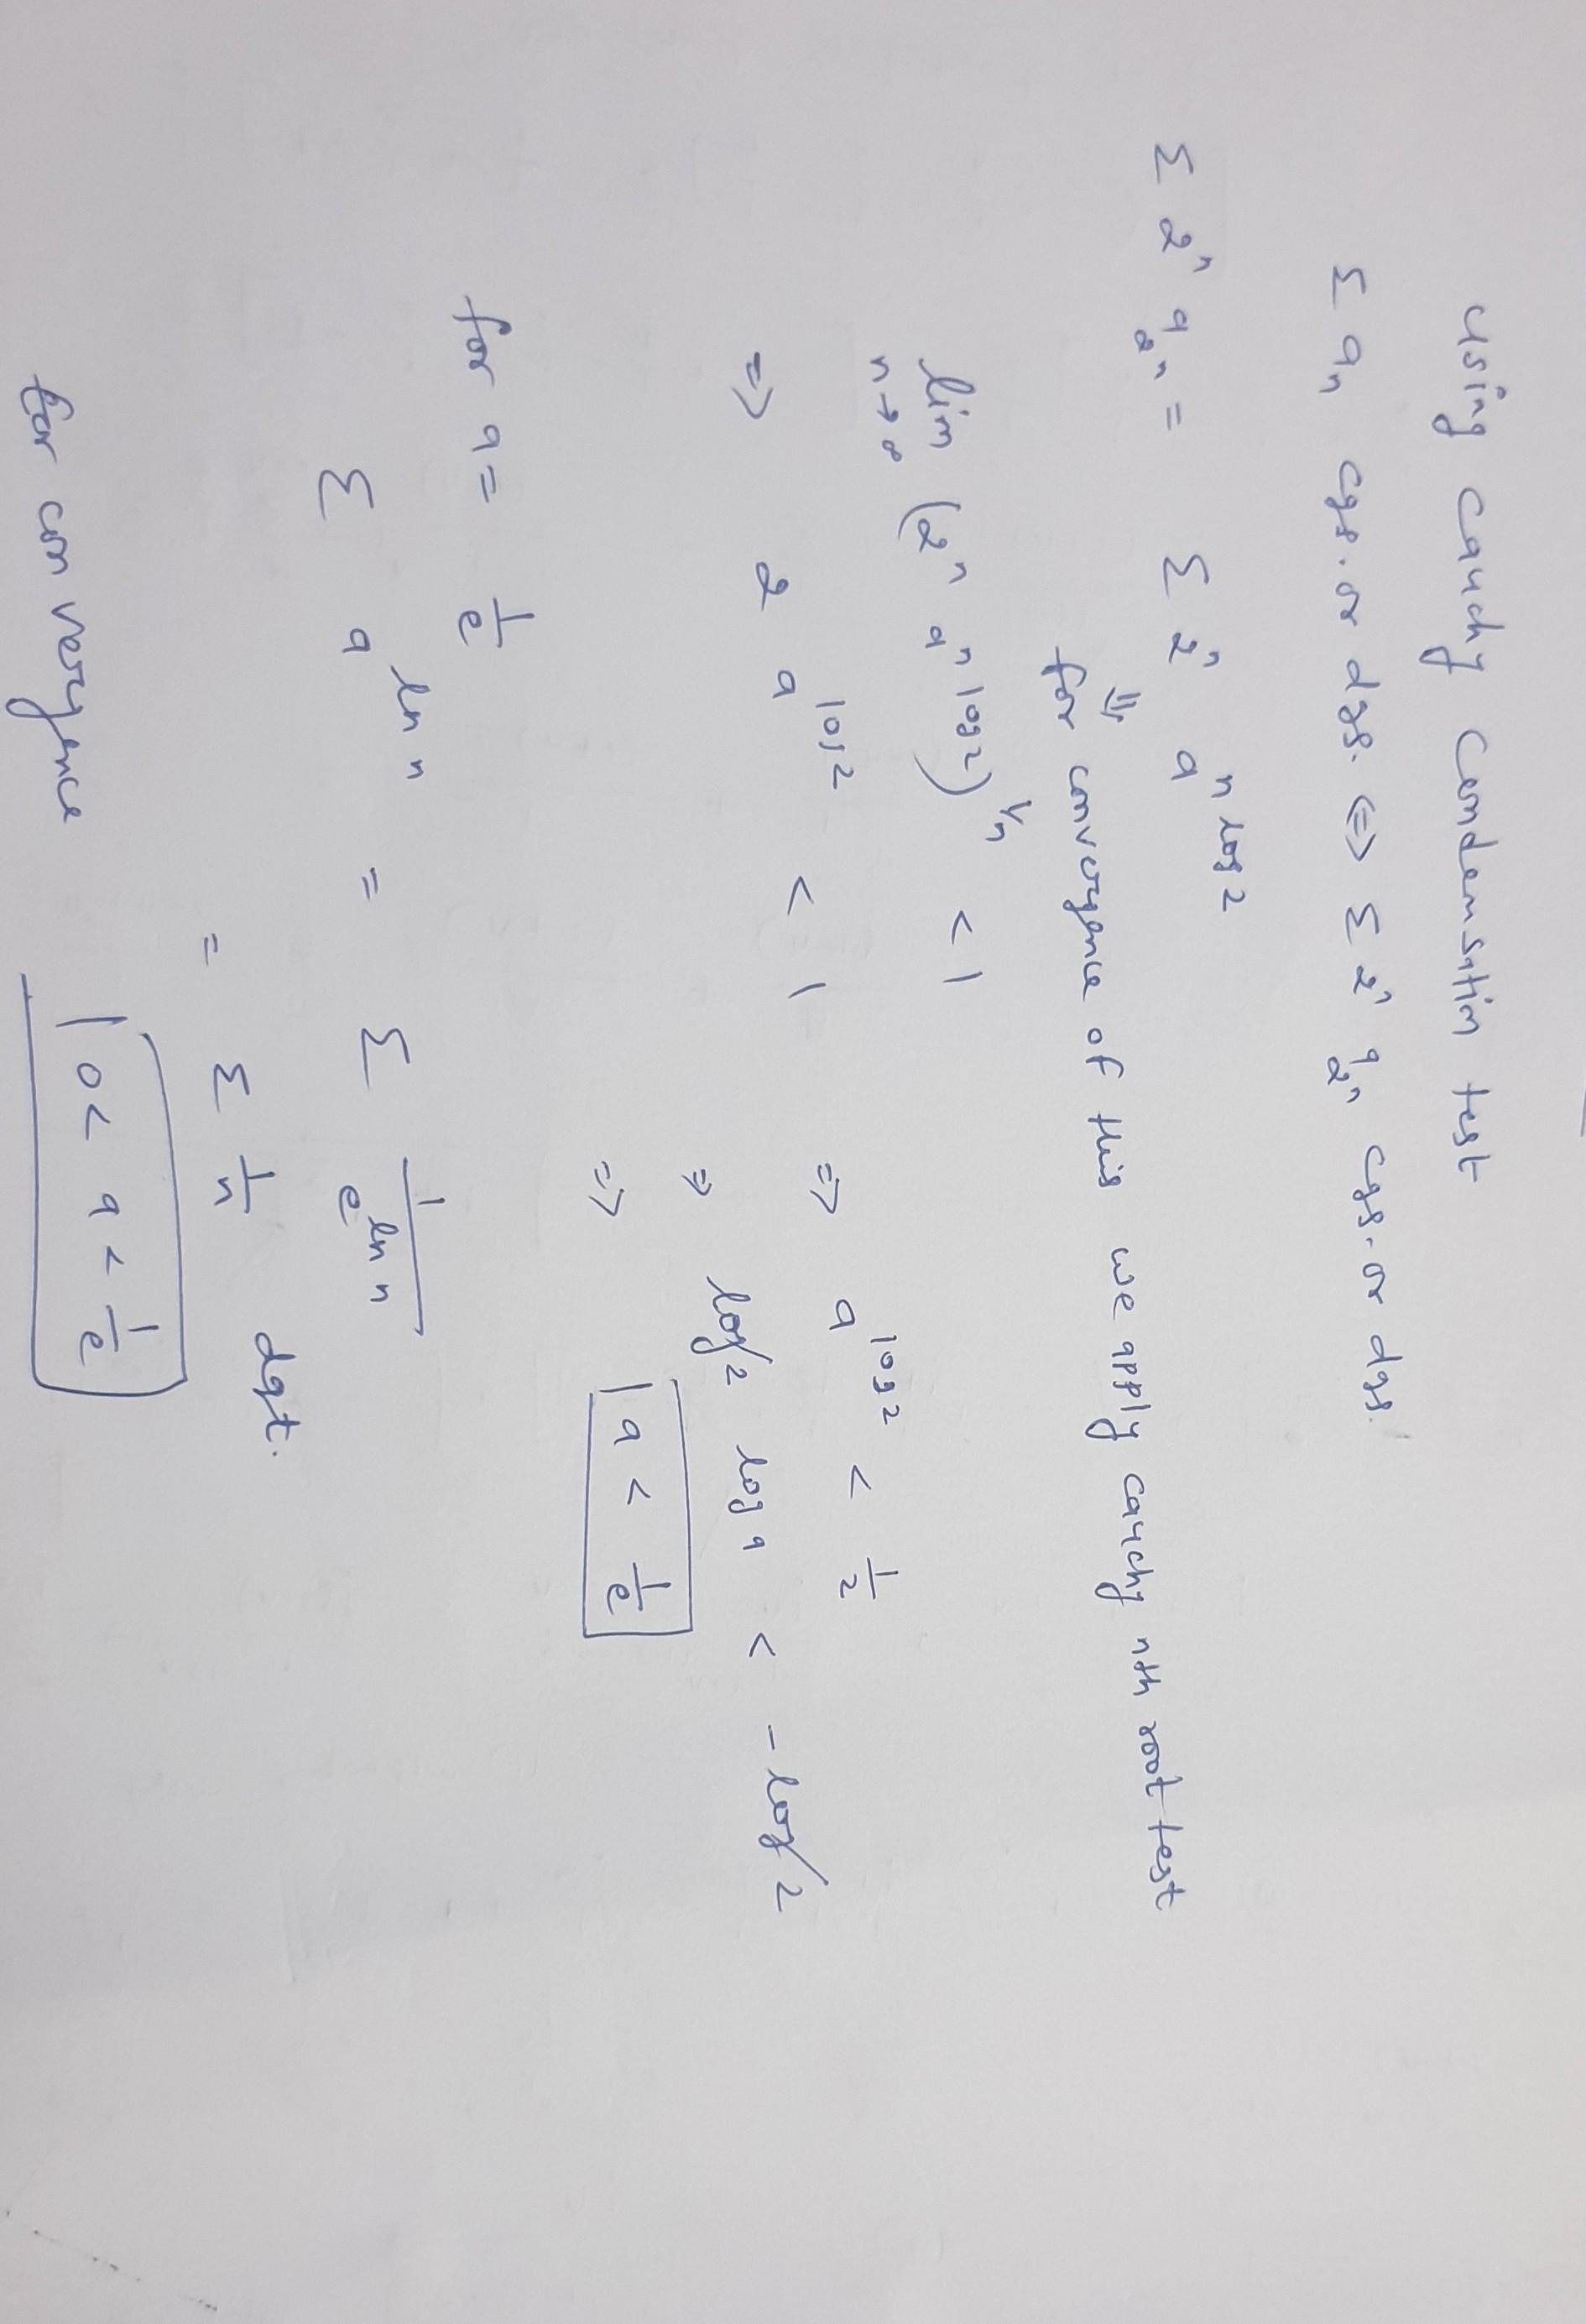 using cauchy condensatin test
Σ aₙ cgs. or dgs. ⇔ Σ 2ⁿ a_{2ⁿ} cgs. or dgs.
Σ 2ⁿ a_{2ⁿ} = Σ 2ⁿ a^{n log 2}
⇓
for convergence of this we apply cauchy nth root test
lim_{n→∞} (2ⁿ a^{n log 2})^{1/n} < 1
⇒ 2 a^{log 2} < 1 ⇒ a^{log 2} < 1/2
⇒ log 2 log a < - log 2
⇒ a < 1/e
for a = 1/e
Σ a^{ln n} = Σ 1/e^{ln n}
= Σ 1/n dgt.
for convergence 0 < a < 1/e